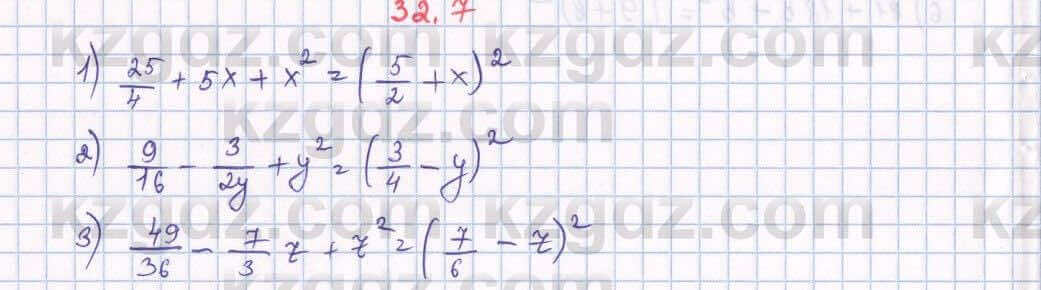 32.7
1) 25/4 + 5x + x² = (5/2 + x)²
2) 9/16 - 3/2y + y² = (3/4 - y)²
3) 49/36 - 7/3 z + z² = (7/6 - z)²
kzgdz.com kzgdz.com kz
kzgdz.com
kzgdz.com kzgdz.com kz